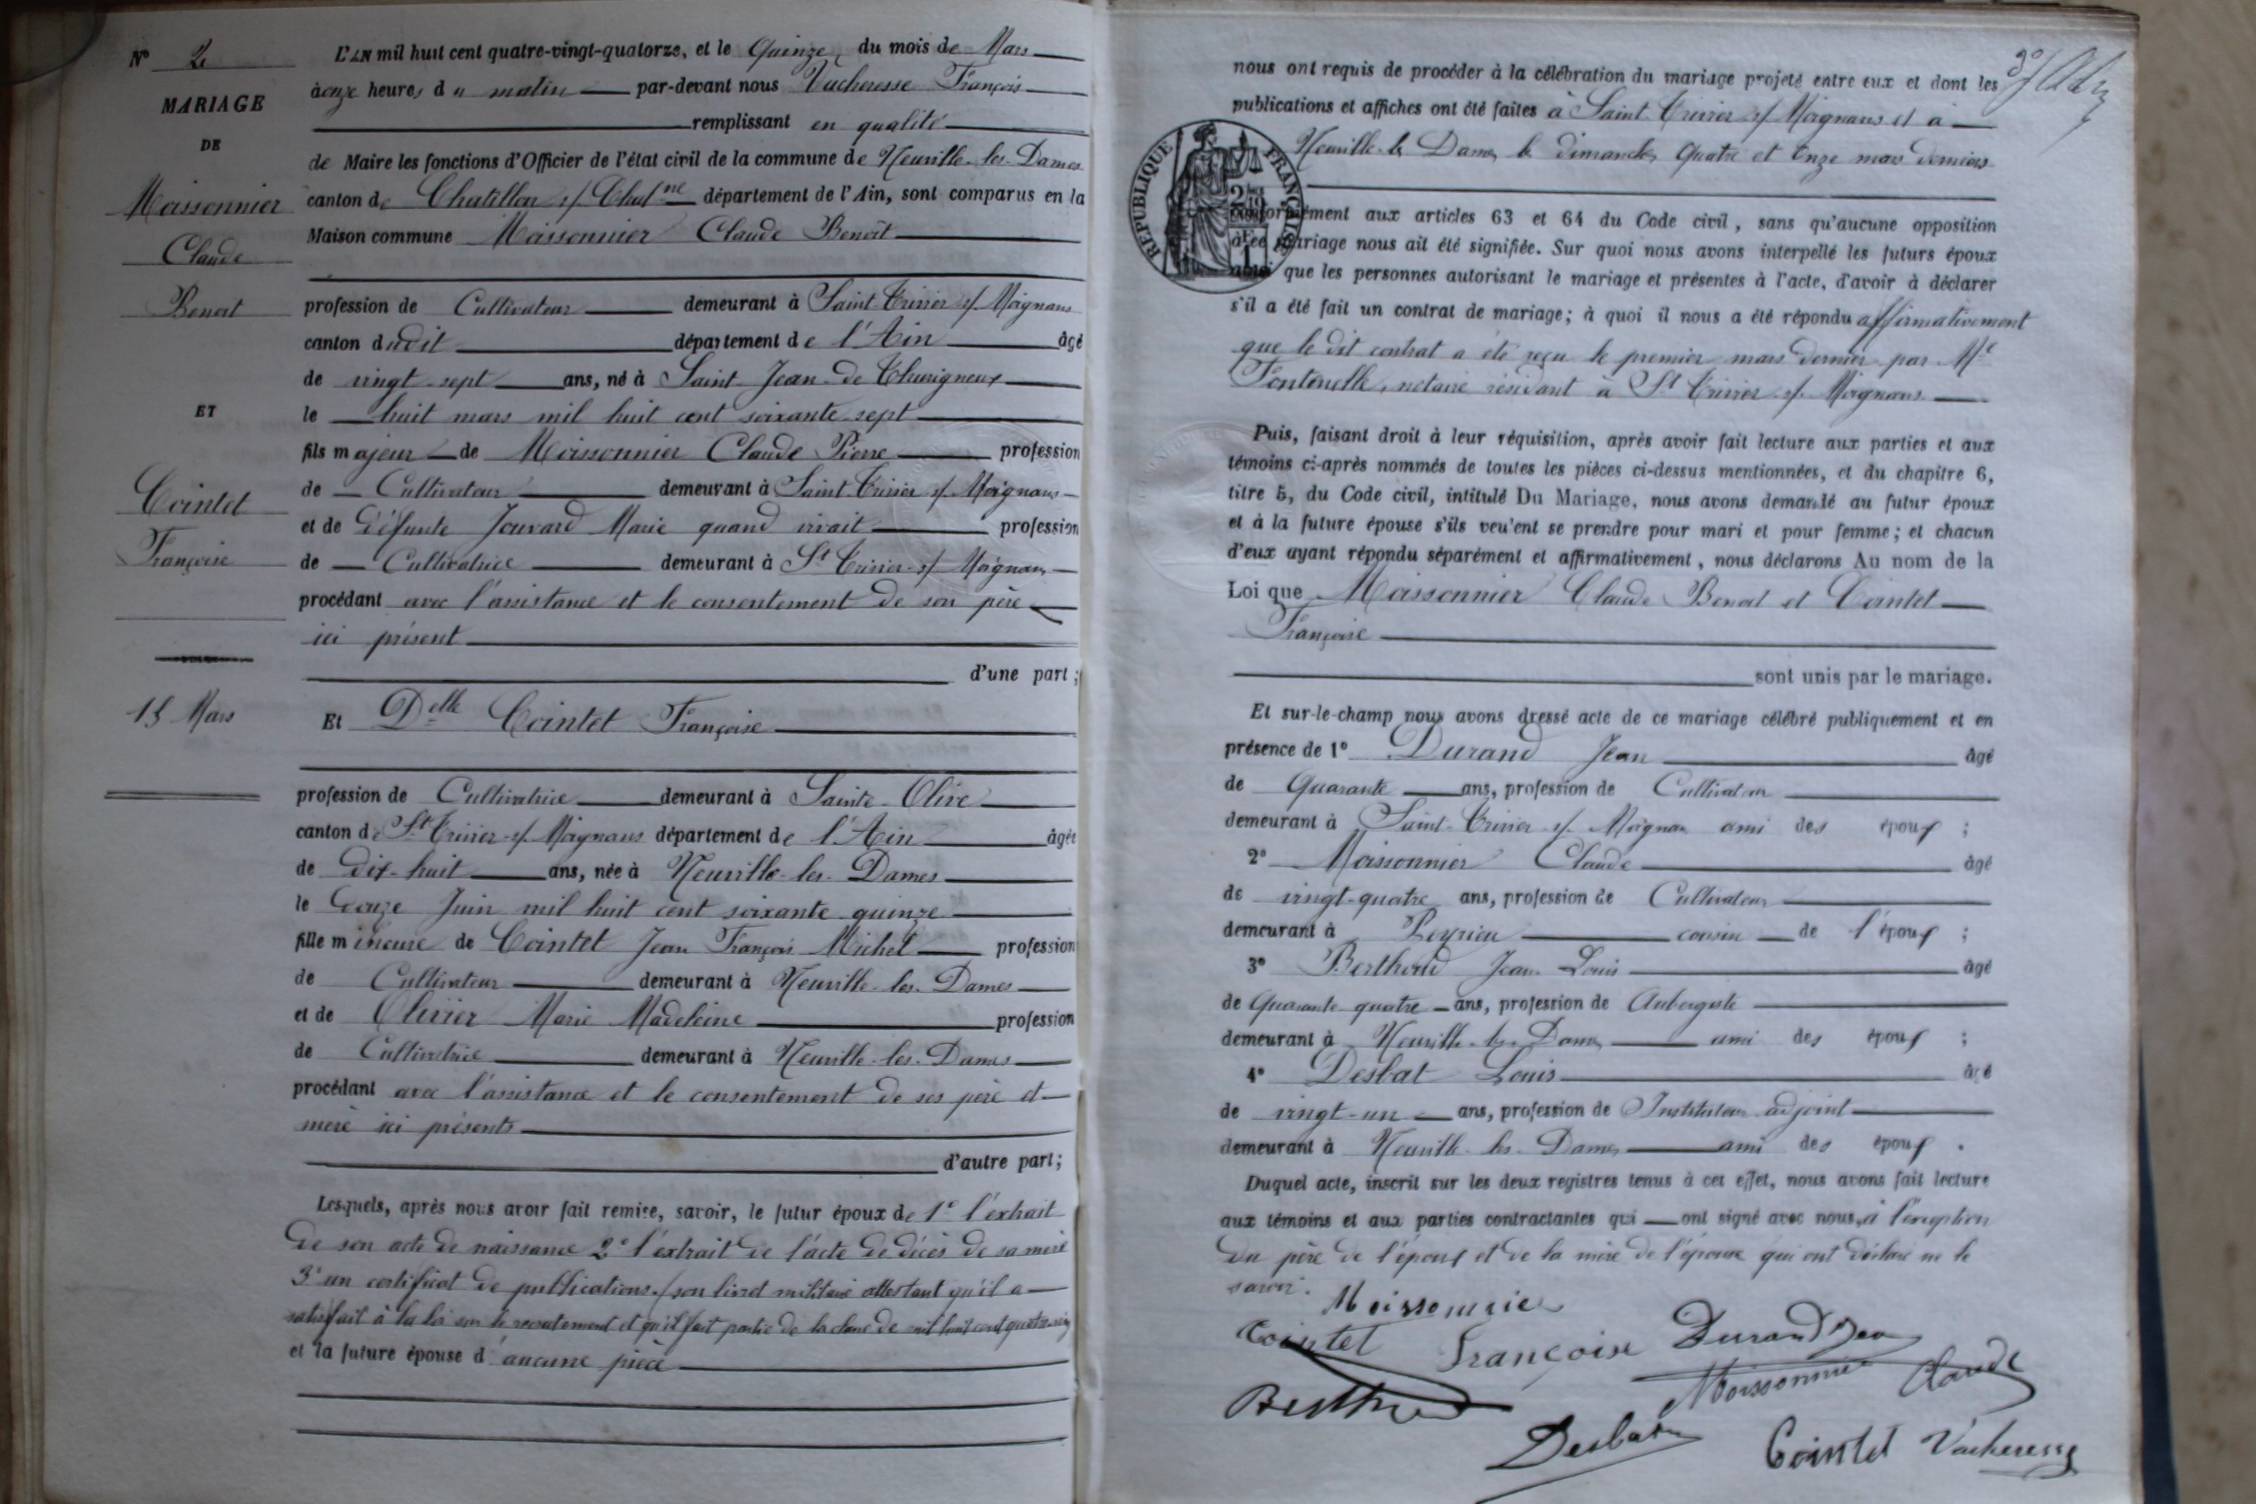 N° 2
MARIAGE
DE
Moissonnier
Claude
Benoit
ET
Cointet
Françoise
15 Mars
L'AN mil huit cent quatre-vingt-quatorze, et le Quinze du mois de Mars
à onze heures du matin par-devant nous Vacheresse François
remplissant en qualité
de Maire les fonctions d'Officier de l'état civil de la commune de Neuville-les-Dames
canton de Chatillon s/ Chalne département de l'Ain, sont comparus en la
Maison commune Moissonnier Claude Benoît
profession de Cultivateur demeurant à Saint-Trivier s/ Moignans
canton dudit département de l'Ain âgé
de vingt-sept ans, né à Saint Jean-de Thurigneux
le huit mars mil huit cent soixante sept
fils majeur de Moissonnier Claude Pierre profession
de Cultivateur demeurant à Saint-Trivier s/ Moignans
et de défunte Jouvard Marie quand vivait profession
de Cultivatrice demeurant à St Trivier s/ Moignans
procédant avec l'assistance et le consentement de son père
ici présent
d'une part;
Et Delle Cointet Françoise
profession de Cultivatrice demeurant à Sainte-Olive
canton de St Trivier s/ Moignans département de l'Ain âgée
de dix-huit ans, née à Neuville-les-Dames
le douze Juin mil huit cent soixante quinze
fille mineure de Cointet Jean François Michel profession
de Cultivateur demeurant à Neuville-les-Dames
et de Olivier Marie Madeleine profession
de Cultivatrice demeurant à Neuville-les-Dames
procédant avec l'assistance et le consentement de ses père et
mère ici présents
d'autre part;
Lesquels, après nous avoir fait remise, savoir, le futur époux de 1° l'extrait
de son acte de naissance 2° l'extrait de l'acte de décès de sa mère
3° un certificat de publications, son livret militaire attestant qu'il a
satisfait à la loi sur le recrutement et qu'il fait partie de la classe de mil huit cent quatre-vingt
et la future épouse d'aucune pièce
nous ont requis de procéder à la célébration du mariage projeté entre eux et dont les
publications et affiches ont été faites à Saint Trivier s/ Moignans et à
Neuville-les Dames les dimanches Quatre et Onze mars derniers
RÉPUBLIQUE FRANÇAISE
conformément aux articles 63 et 64 du Code civil, sans qu'aucune opposition
à ce mariage nous ait été signifiée. Sur quoi nous avons interpellé les futurs époux
ainsi que les personnes autorisant le mariage et présentes à l'acte, d'avoir à déclarer
s'il a été fait un contrat de mariage; à quoi il nous a été répondu affirmativement
que le dit contrat a été reçu le premier mars dernier par Me
Fontenelle, notaire résidant à St Trivier s/ Moignans
Puis, faisant droit à leur réquisition, après avoir fait lecture aux parties et aux
témoins ci-après nommés de toutes les pièces ci-dessus mentionnées, et du chapitre 6,
titre 5, du Code civil, intitulé Du Mariage, nous avons demandé au futur époux
et à la future épouse s'ils veulent se prendre pour mari et pour femme; et chacun
d'eux ayant répondu séparément et affirmativement, nous déclarons Au nom de la
Loi que Moissonnier Claude Benoit et Cointet
Françoise
sont unis par le mariage.
Et sur-le-champ nous avons dressé acte de ce mariage célébré publiquement et en
présence de 1° Durand Jean âgé
de Quarante ans, profession de Cultivateur
demeurant à Saint-Trivier s/ Moignans ami des époux;
2° Moissonnier Claude âgé
de vingt-quatre ans, profession de Cultivateur
demeurant à Peyrieu cousin de l'époux;
3° Berthoud Jean-Louis âgé
de Quarante quatre ans, profession de Aubergiste
demeurant à Neuville-les-Dames ami des époux;
4° Desbat Louis âgé
de vingt-un ans, profession de Instituteur adjoint
demeurant à Neuville-les-Dames ami des époux.
Duquel acte, inscrit sur les deux registres tenus à cet effet, nous avons fait lecture
aux témoins et aux parties contractantes qui ont signé avec nous, à l'exception
du père de l'époux et de la mère de l'épouse qui ont déclaré ne le
savoir.
Moissonnier
Cointet Françoise Durand Jean
Moissonnier Claude
Berthoud
Desbat Cointet Vacheresse